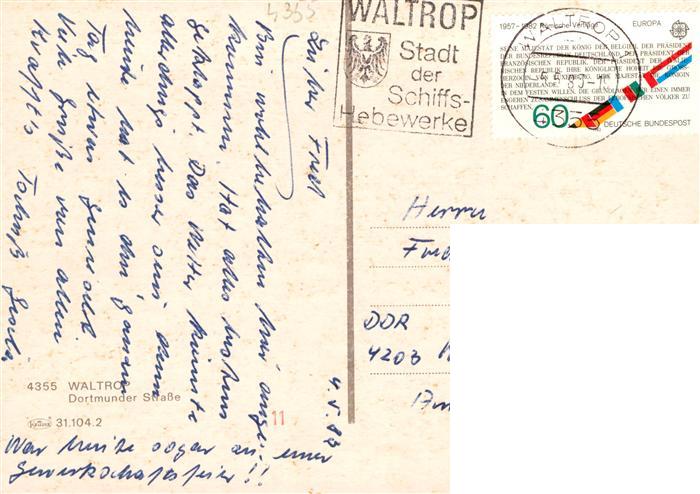 4355
WALTROP
Stadt
der
Schiffs-
Hebewerke
WALTROP
4.5.83-1
4355
1957-1982 Römische Verträge
EUROPA
CEPT
SEINE MAJESTÄT DER KÖNIG DER BELGIER, DER PRÄSIDENT
DER BUNDESREPUBLIK DEUTSCHLAND, DER PRÄSIDENT DER
FRANZÖSISCHEN REPUBLIK, DER PRÄSIDENT DER
REPUBLIK, IHRE KÖNIGLICHE HOHEIT
HERZOGIN MAJESTÄT DIE KÖNIGIN
DER NIEDERLANDE
IN DEM FESTEN WILLEN, DIE GRUNDLAGEN FÜR EINEN IMMER
ENGEREN ZUSAMMENSCHLUSS DER EUROPÄISCHEN VÖLKER ZU
SCHAFFEN
60
DEUTSCHE BUNDESPOST
Lieber Fred
Bin wohlbehalten hier ange-
kommen. Hat alles bestens
geklappt. Das Wetter könnte
allerdings besser sein denn
heute hat es den ganzen
Tag etwas genieselt
Viele Grüße von allen
4.5.83
War heute sogar an einer
Gewerkschaftsfeier!!
4355 WALTROP
Dortmunder Straße
Krüger 31.104.2
11
Herrn
DDR
4203